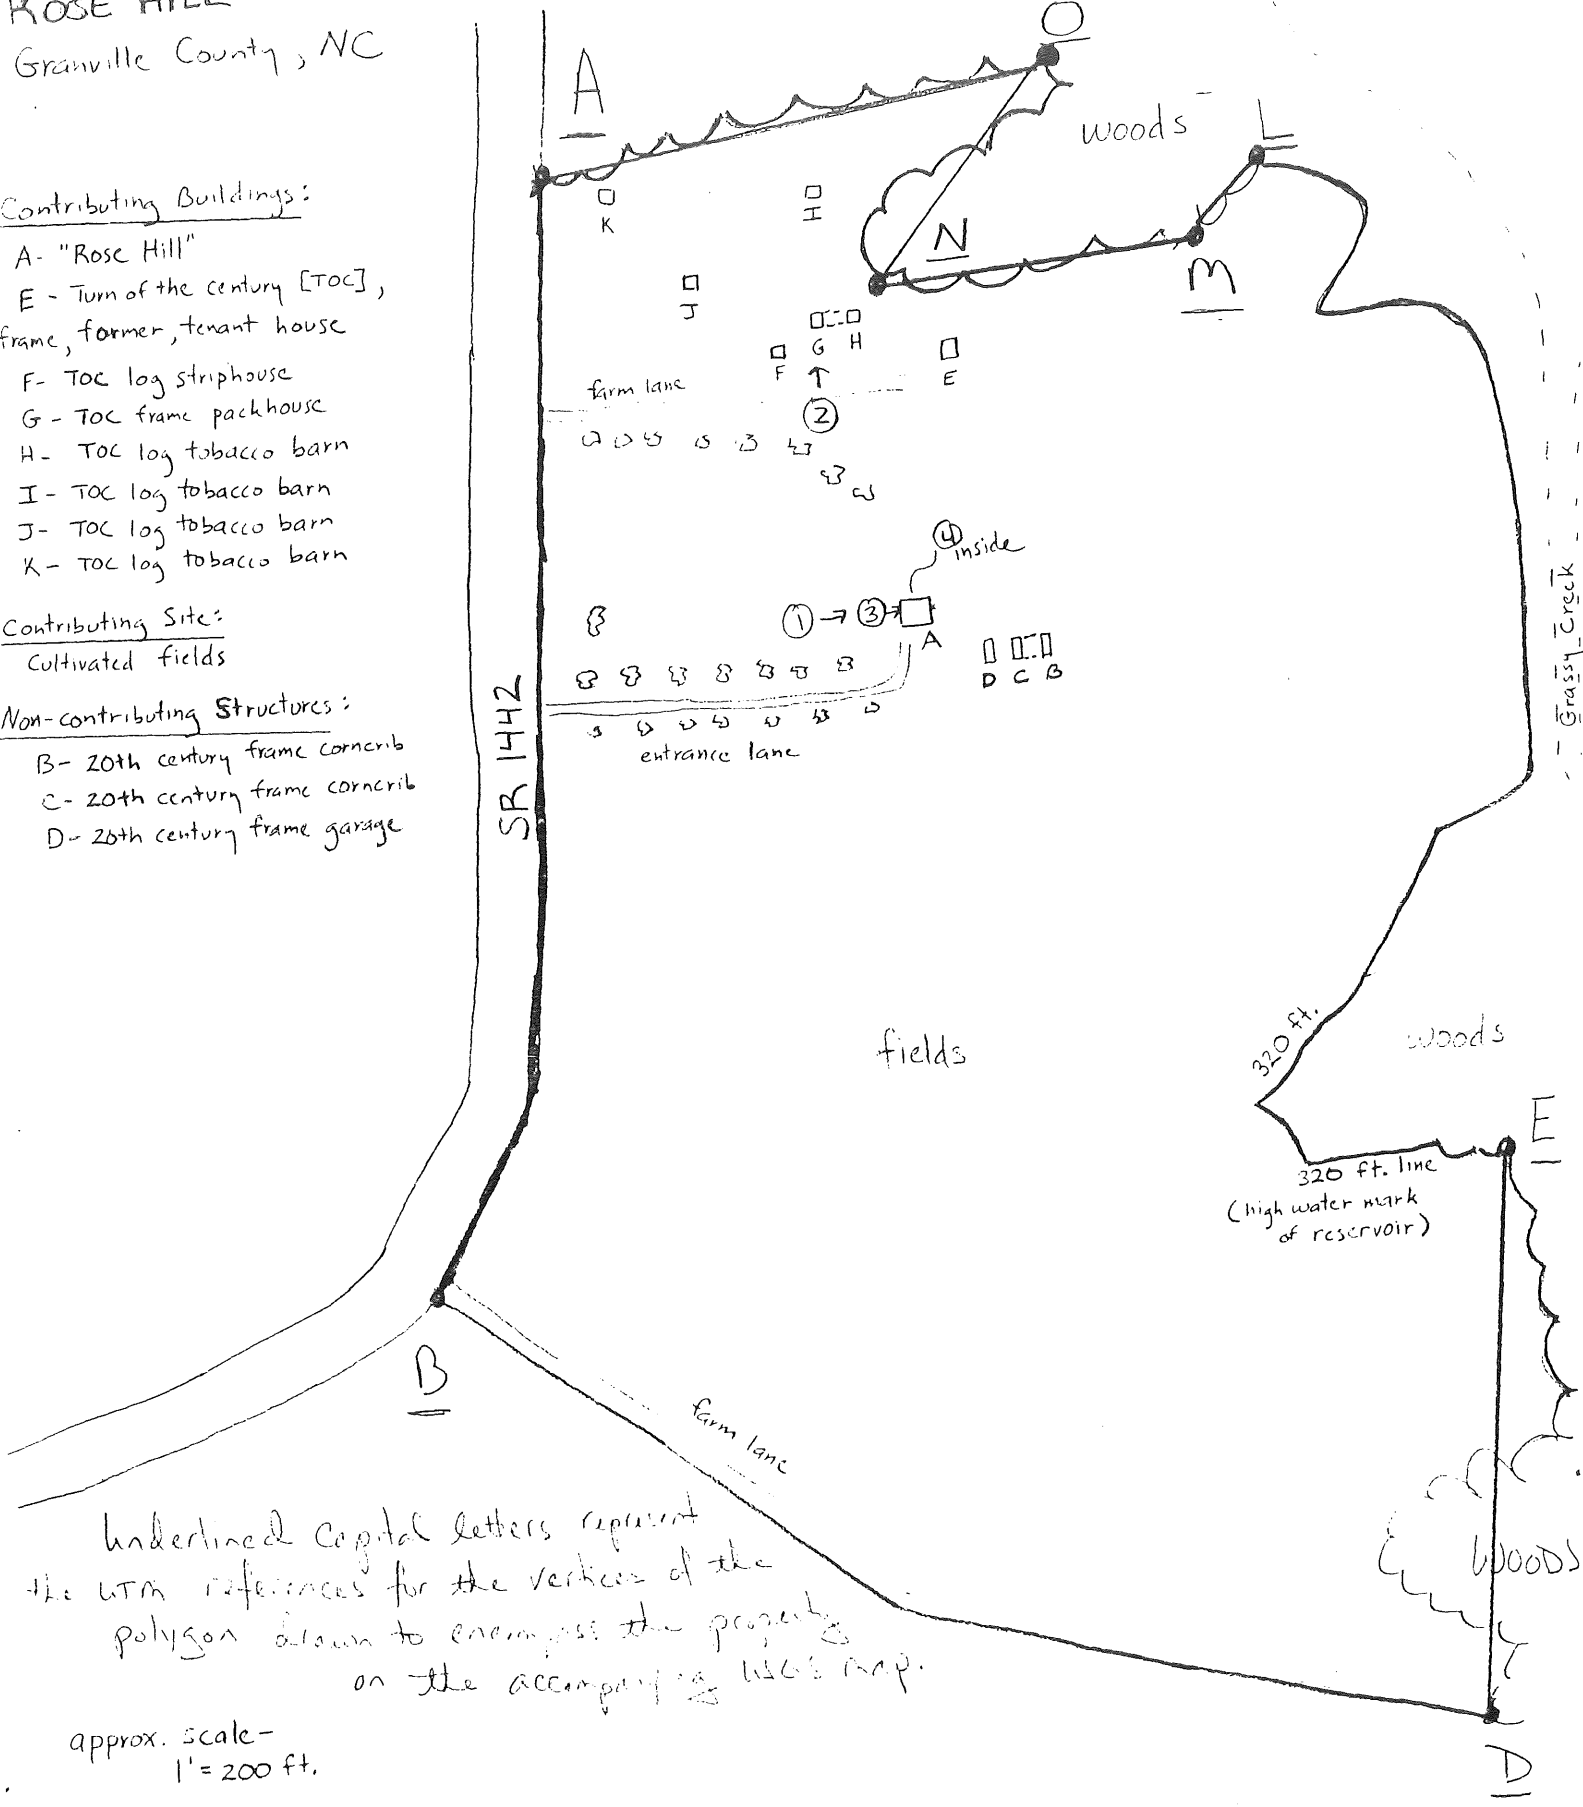 ROSE HILL
Granville County, NC
Contributing Buildings:
A- "Rose Hill"
E - Turn of the century [TOC],
frame, former, tenant house
F- TOC log striphouse
G - TOC frame packhouse
H- TOC log tobacco barn
I - TOC log tobacco barn
J- TOC log tobacco barn
K- TOC log tobacco barn
Contributing Site:
Cultivated fields
Non-contributing Structures:
B- 20th century frame corncrib
C- 20th century frame corncrib
D- 20th century frame garage
O
A
woods
L
K
I
N
M
J
G H
F
E
farm lane
2
4
inside
1
3
A
D C B
entrance lane
SR 1442
Grassy Creek
fields
320 ft.
woods
E
320 ft. line
(high water mark
of reservoir)
B
farm lane
WOODS
Underlined Capital letters represent
the UTM references for the vertices of the
polygon drawn to encompass the property
on the accompanying USGS map.
approx. scale-
1' = 200 ft.
D